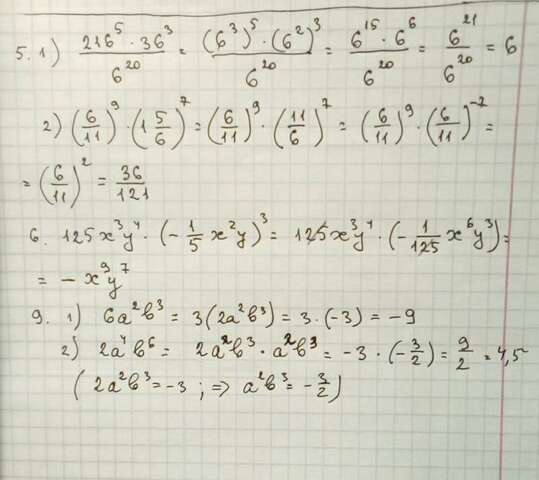 5. 1) \frac{216^5 · 36^3}{6^{20}} = \frac{(6^3)^5 · (6^2)^3}{6^{20}} = \frac{6^{15} · 6^6}{6^{20}} = \frac{6^{21}}{6^{20}} = 6
2) (\frac{6}{11})^9 · (1\frac{5}{6})^7 = (\frac{6}{11})^9 · (\frac{11}{6})^7 = (\frac{6}{11})^9 · (\frac{6}{11})^{-7} =
= (\frac{6}{11})^2 = \frac{36}{121}
6. 125x^3y^4 · (-\frac{1}{5}x^2y)^3 = 125x^3y^4 · (-\frac{1}{125}x^6y^3) =
= -x^9y^7
9. 1) 6a^2b^3 = 3(2a^2b^3) = 3 · (-3) = -9
2) 2a^4b^6 = 2a^2b^3 · a^2b^3 = -3 · (-\frac{3}{2}) = \frac{9}{2} = 4,5
(2a^2b^3 = -3 ; ⇒ a^2b^3 = -\frac{3}{2})